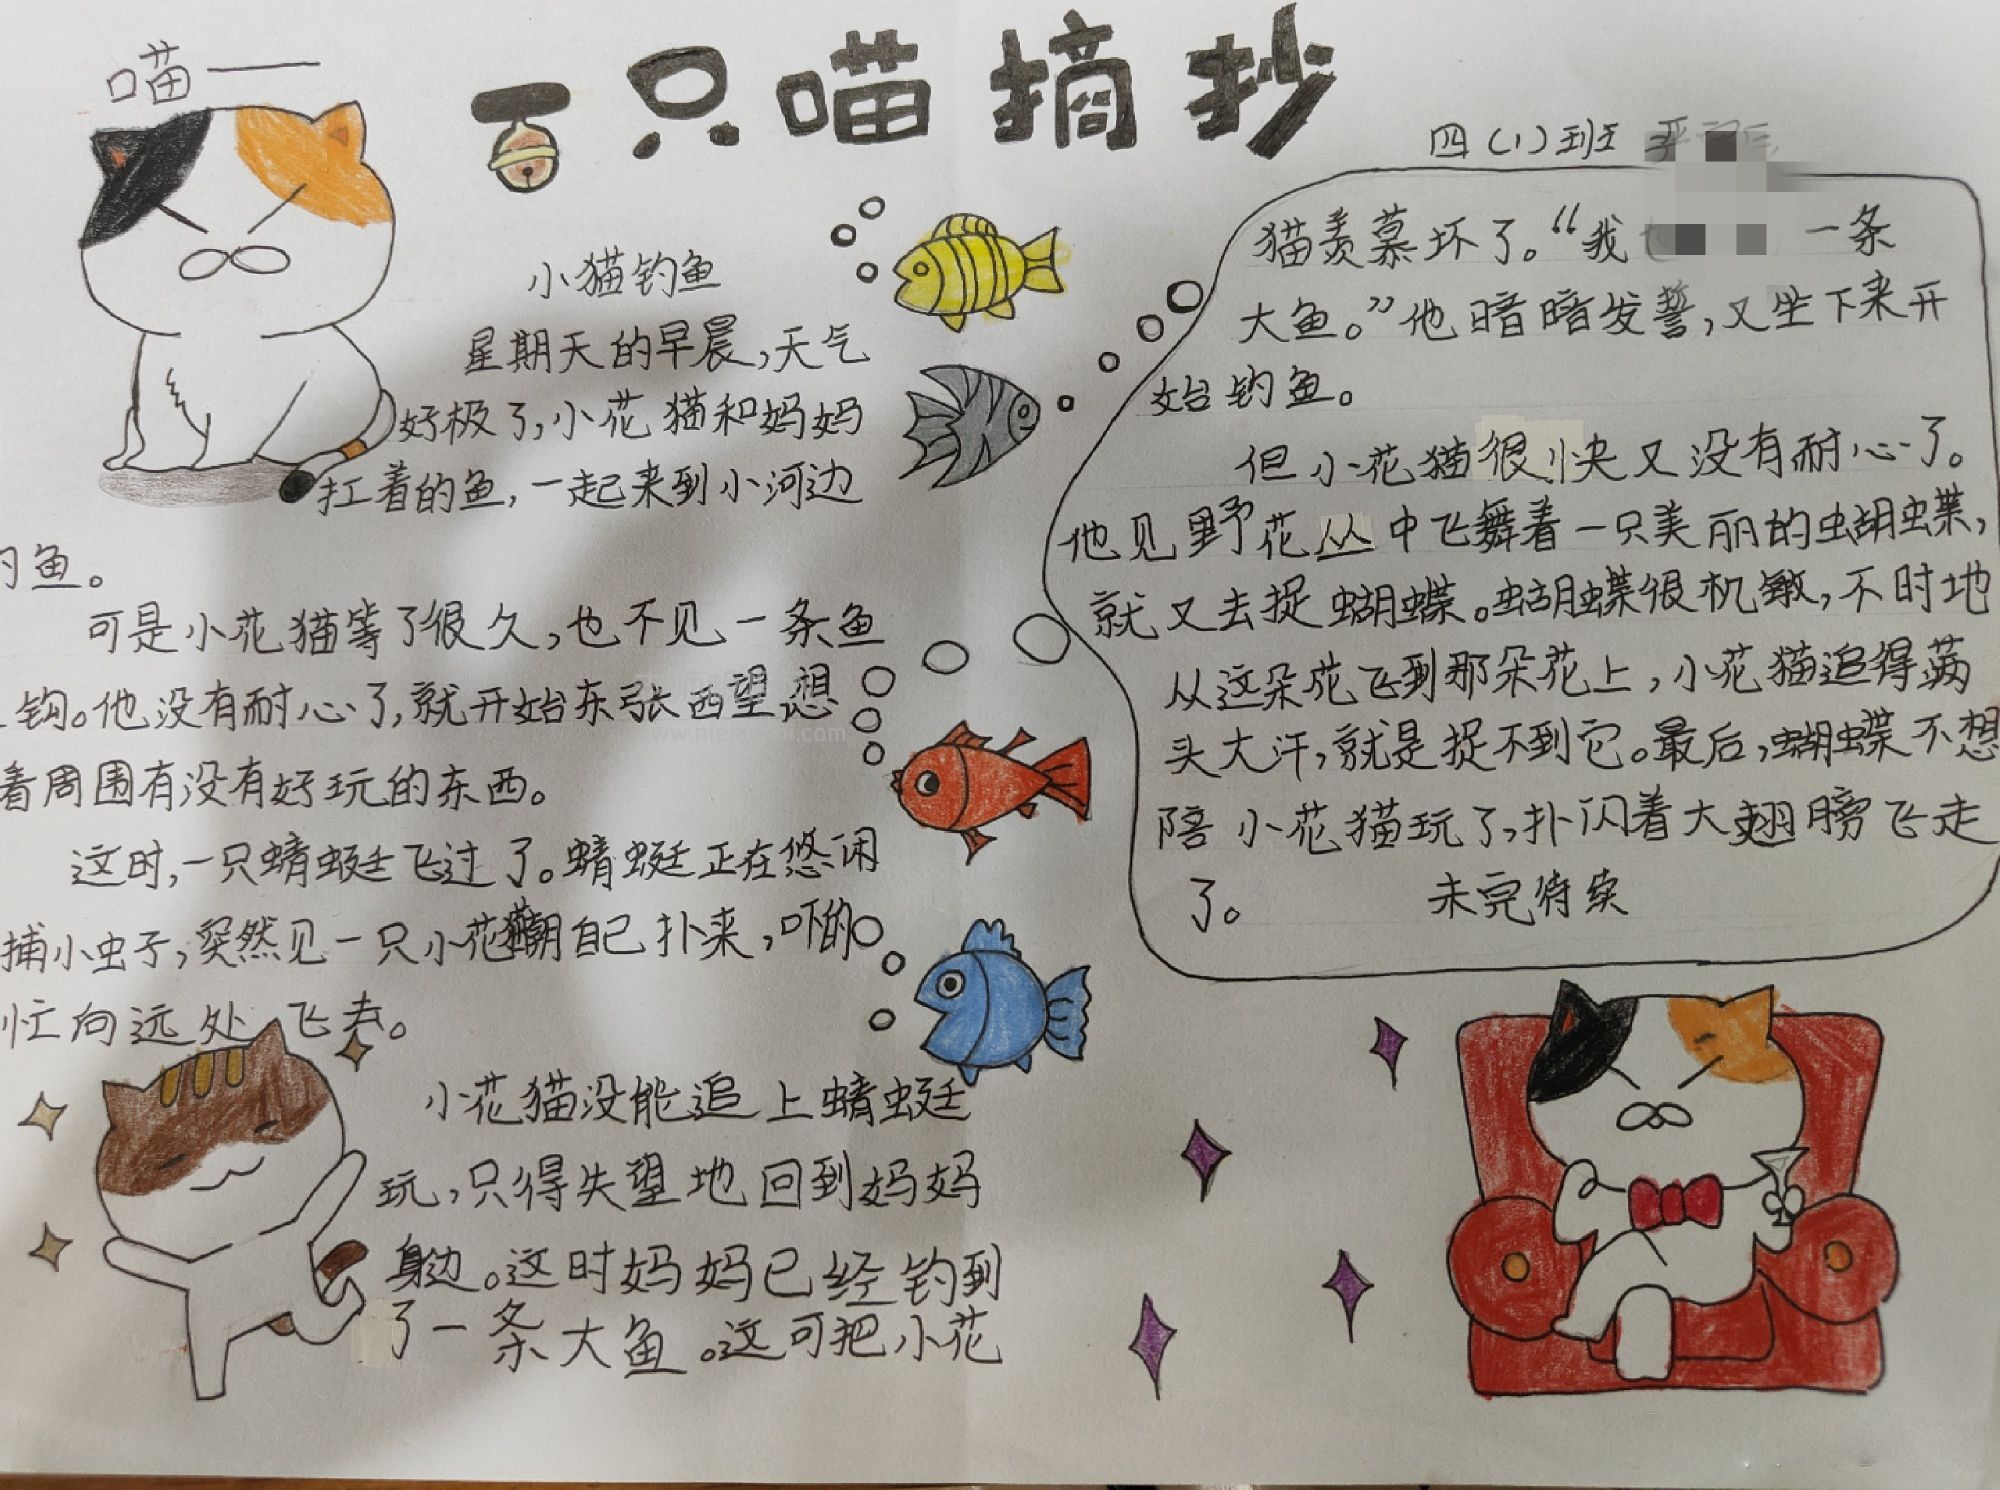 喵——
一只喵摘抄
四(1)班
小猫钓鱼
星期天的早晨,天气
好极了,小花猫和妈妈
扛着的鱼,一起来到小河边
钓鱼。
可是小花猫等了很久,也不见一条鱼
上钩。他没有耐心了,就开始东张西望,想
看周围有没有好玩的东西。
这时,一只蜻蜓飞过了。蜻蜓正在悠闲
捕小虫子,突然见一只小花猫朝自己扑来,吓的
忙向远处飞去。
小花猫没能追上蜻蜓
玩,只得失望地回到妈妈
身边。这时妈妈已经钓到
了一条大鱼。这可把小花
猫羡慕坏了。“我 一条
大鱼。”他暗暗发誓,又坐下来开
始钓鱼。
但小花猫很快又没有耐心了。
他见野花丛中飞舞着一只美丽的蝴蝶,
就又去捉蝴蝶。蝴蝶很机敏,不时地
从这朵花飞到那朵花上,小花猫追得满
头大汗,就是捉不到它。最后,蝴蝶不想
陪小花猫玩了,扑闪着大翅膀飞走
了。 未完待续